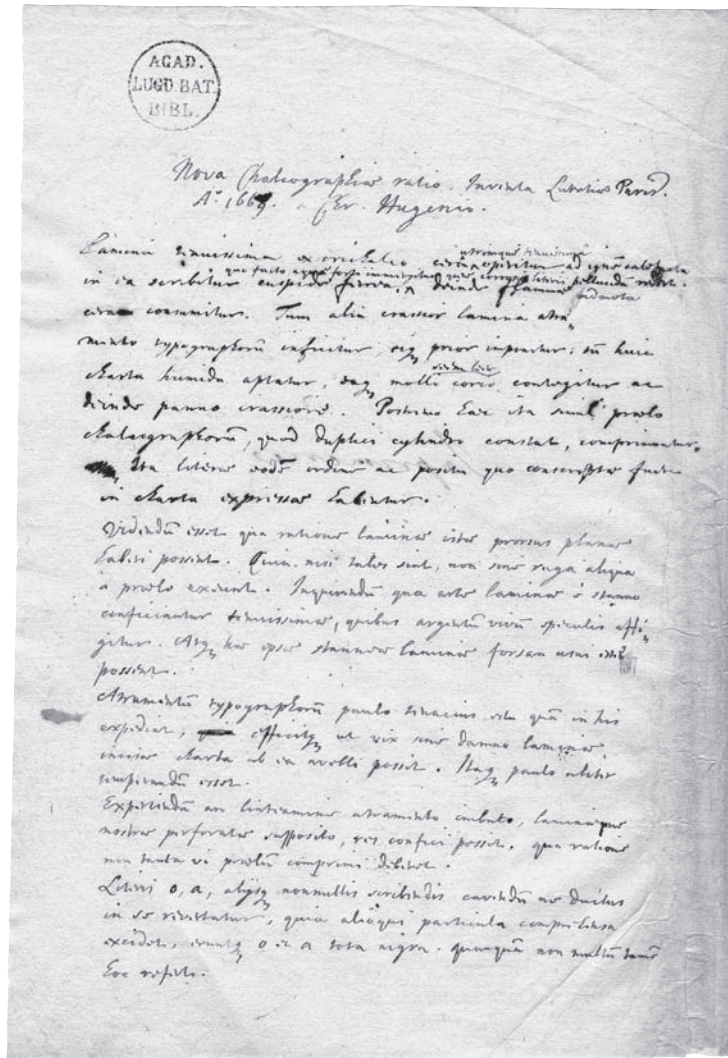 ACAD.
LUGD. BAT.
BIBL.
Nova Chalcographiæ ratio. Inventa Lutetiæ Paris.
A.º 1669. a Chr. Hugenio.
utrinque
Lamina tenuissima ex orichalco cera ad ignẽ calefacta
quo facto aqua fortis immittitur quæ literis pellucidũ reddit.
in ea scribitur cuspide ferrea, deinde flammæ
admota
cera consumitur. Tum alia crassior lamina atra-
mento typographorũ inficitur, eiq prior imponitur; tũ huic
charta humida aptatur, eaq molli corio contegitur ac
deinde panno crassiore. Postremo hæc ita simul prælo
chalcographorũ, quod duplici cylindro constat, comprimuntur.
Ita literæ eodẽ ordine ac positu quo conscriptæ fuere
in charta expressæ habentur.
Videndũ esset qua ratione laminæ istæ prorsus planæ
haberi possent. Quia nisi tales sint, non sine ruga aliqua
a prælo exeunt. Inquirendũ qua arte laminæ e stanno
conficiantur tenuissimæ, quibus argentũ vivũ speculis affi-
gitur. Atq hæ ipsæ stanneæ laminæ forsan usui esse
possent.
Atramentũ typographorũ paulo tenacius est quã in his
expediat, efficitq ut vix sine damno laminæ
incisæ charta ab ea avelli possit. Itaq paulo aliter
temperandũ esset.
Experiendũ an linteamine atramento imbuto, laminæque
nostræ perforatæ supposito, res confici possit. qua ratione
non tanta vi prælũ comprimi deberet.
Literis o, a, alijsq nonnullis scribendis cavendũ ne ductus
in se revertatur, quia alioqui particula comprehensa
excidet, eruntq o et a tota nigra. quanquã non multũ tamẽ
hoc refert.